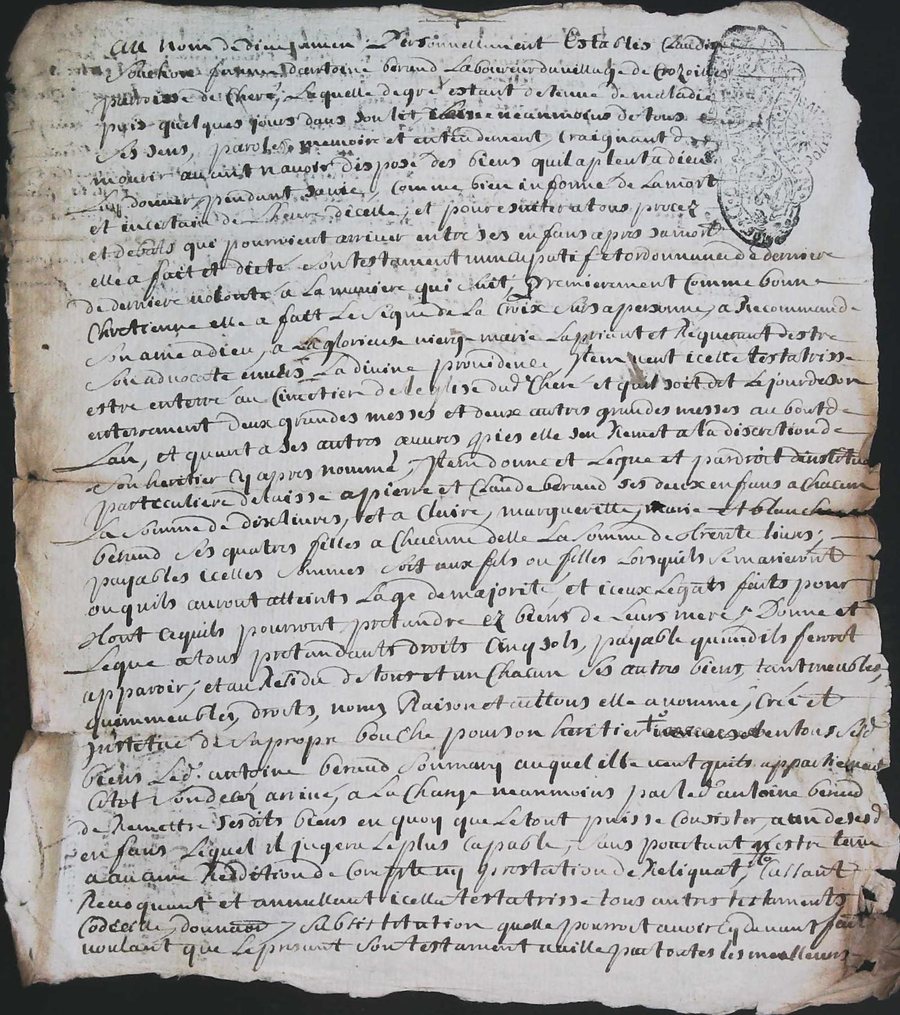 Au nom de dieu amen Personnellement Establis Claudine
femme d'antoine beraud Laboureur du village de
parroisse de Cheré, Laquelle de gré estant detenue de maladie
puis quelques jours dans son lit neanmoins de tous
ses sens, parolle, memoire et entendement, Craignant de
mourir avant n'avoir disposé des biens quil a pleut a dieu
Luy donner, pendant sa vie, Comme bien informé de La mort
et incertain de L'heure d'icelle, et pour esviter a tous procez
et debats qui pourroient arriver entre ses enfans apres sa mort
elle a fait et dicté son testament nuncupatif et ordonnance de derniere
de derniere volonté a La maniere qui suit, Premierement Comme bonne
Chretienne elle a fait Le signe de La Croix sur sa personne, a Recommandé
son ame a dieu, a La glorieuse vierge marie La priant et Requerant d'estre
son advocate envers La divine providence, Item veut icelle testatrisse
estre enterré au Cimetier de leglise dud Cheré et quil soit dit Le jour de son
enterrement deux grandes messes et deux autres grandes messes au bout de
L'an, et quant a ses autres œuvres pies elle s'en Remet a la discretion de
son heritier cy apres nommé, Item donne et Legue et par droit d'institution
particuliere delaisse a pierre et Claude beraud ses deux enfans a Chacun
La somme de dix livres, et a Claire, marguerette, marie et blanche
beraud ses quatres filles a Chacunne d'elle La somme de trente livres,
payables icelles sommes soit aux fils ou filles Lorsquils se marieront
ou quils auront atteints L'age de majorité, et iceux Legats faits pour
tout ce quils pourront pretandre ez biens de Leurs mere, Donne et
Legue a tous pretandants droits Cinq sols, payable quand ils feront
apparoir, et au Residu de tous et un Chacun ses autres biens, tant meubles,
qu'immeubles, droits, noms Raison et actions elle a nommé, Créé et
institué de sa propre bouche pour son heritier en tous sesd
biens Led. antoine beraud son mary auquel elle veut quils appartiennent
sitot son decez arrivé, a La Charge neanmoins par led antoine beraud
de Remettre sesdits biens en quoy que Le tout puisse Consister, a un de sesd
enfans Lequel il jugera Le plus Capable, sans pourtant estre tenu
a aucune Reddition de Compte ny prestation de Reliquat, Cassant
Revoquant et annullant icelle testatrisse tous autres testaments
Codecille, donnaon, substitution quelle pourroit avoir cy devant fait
voulant que Le present son testament vaille par toutes les meilleurs